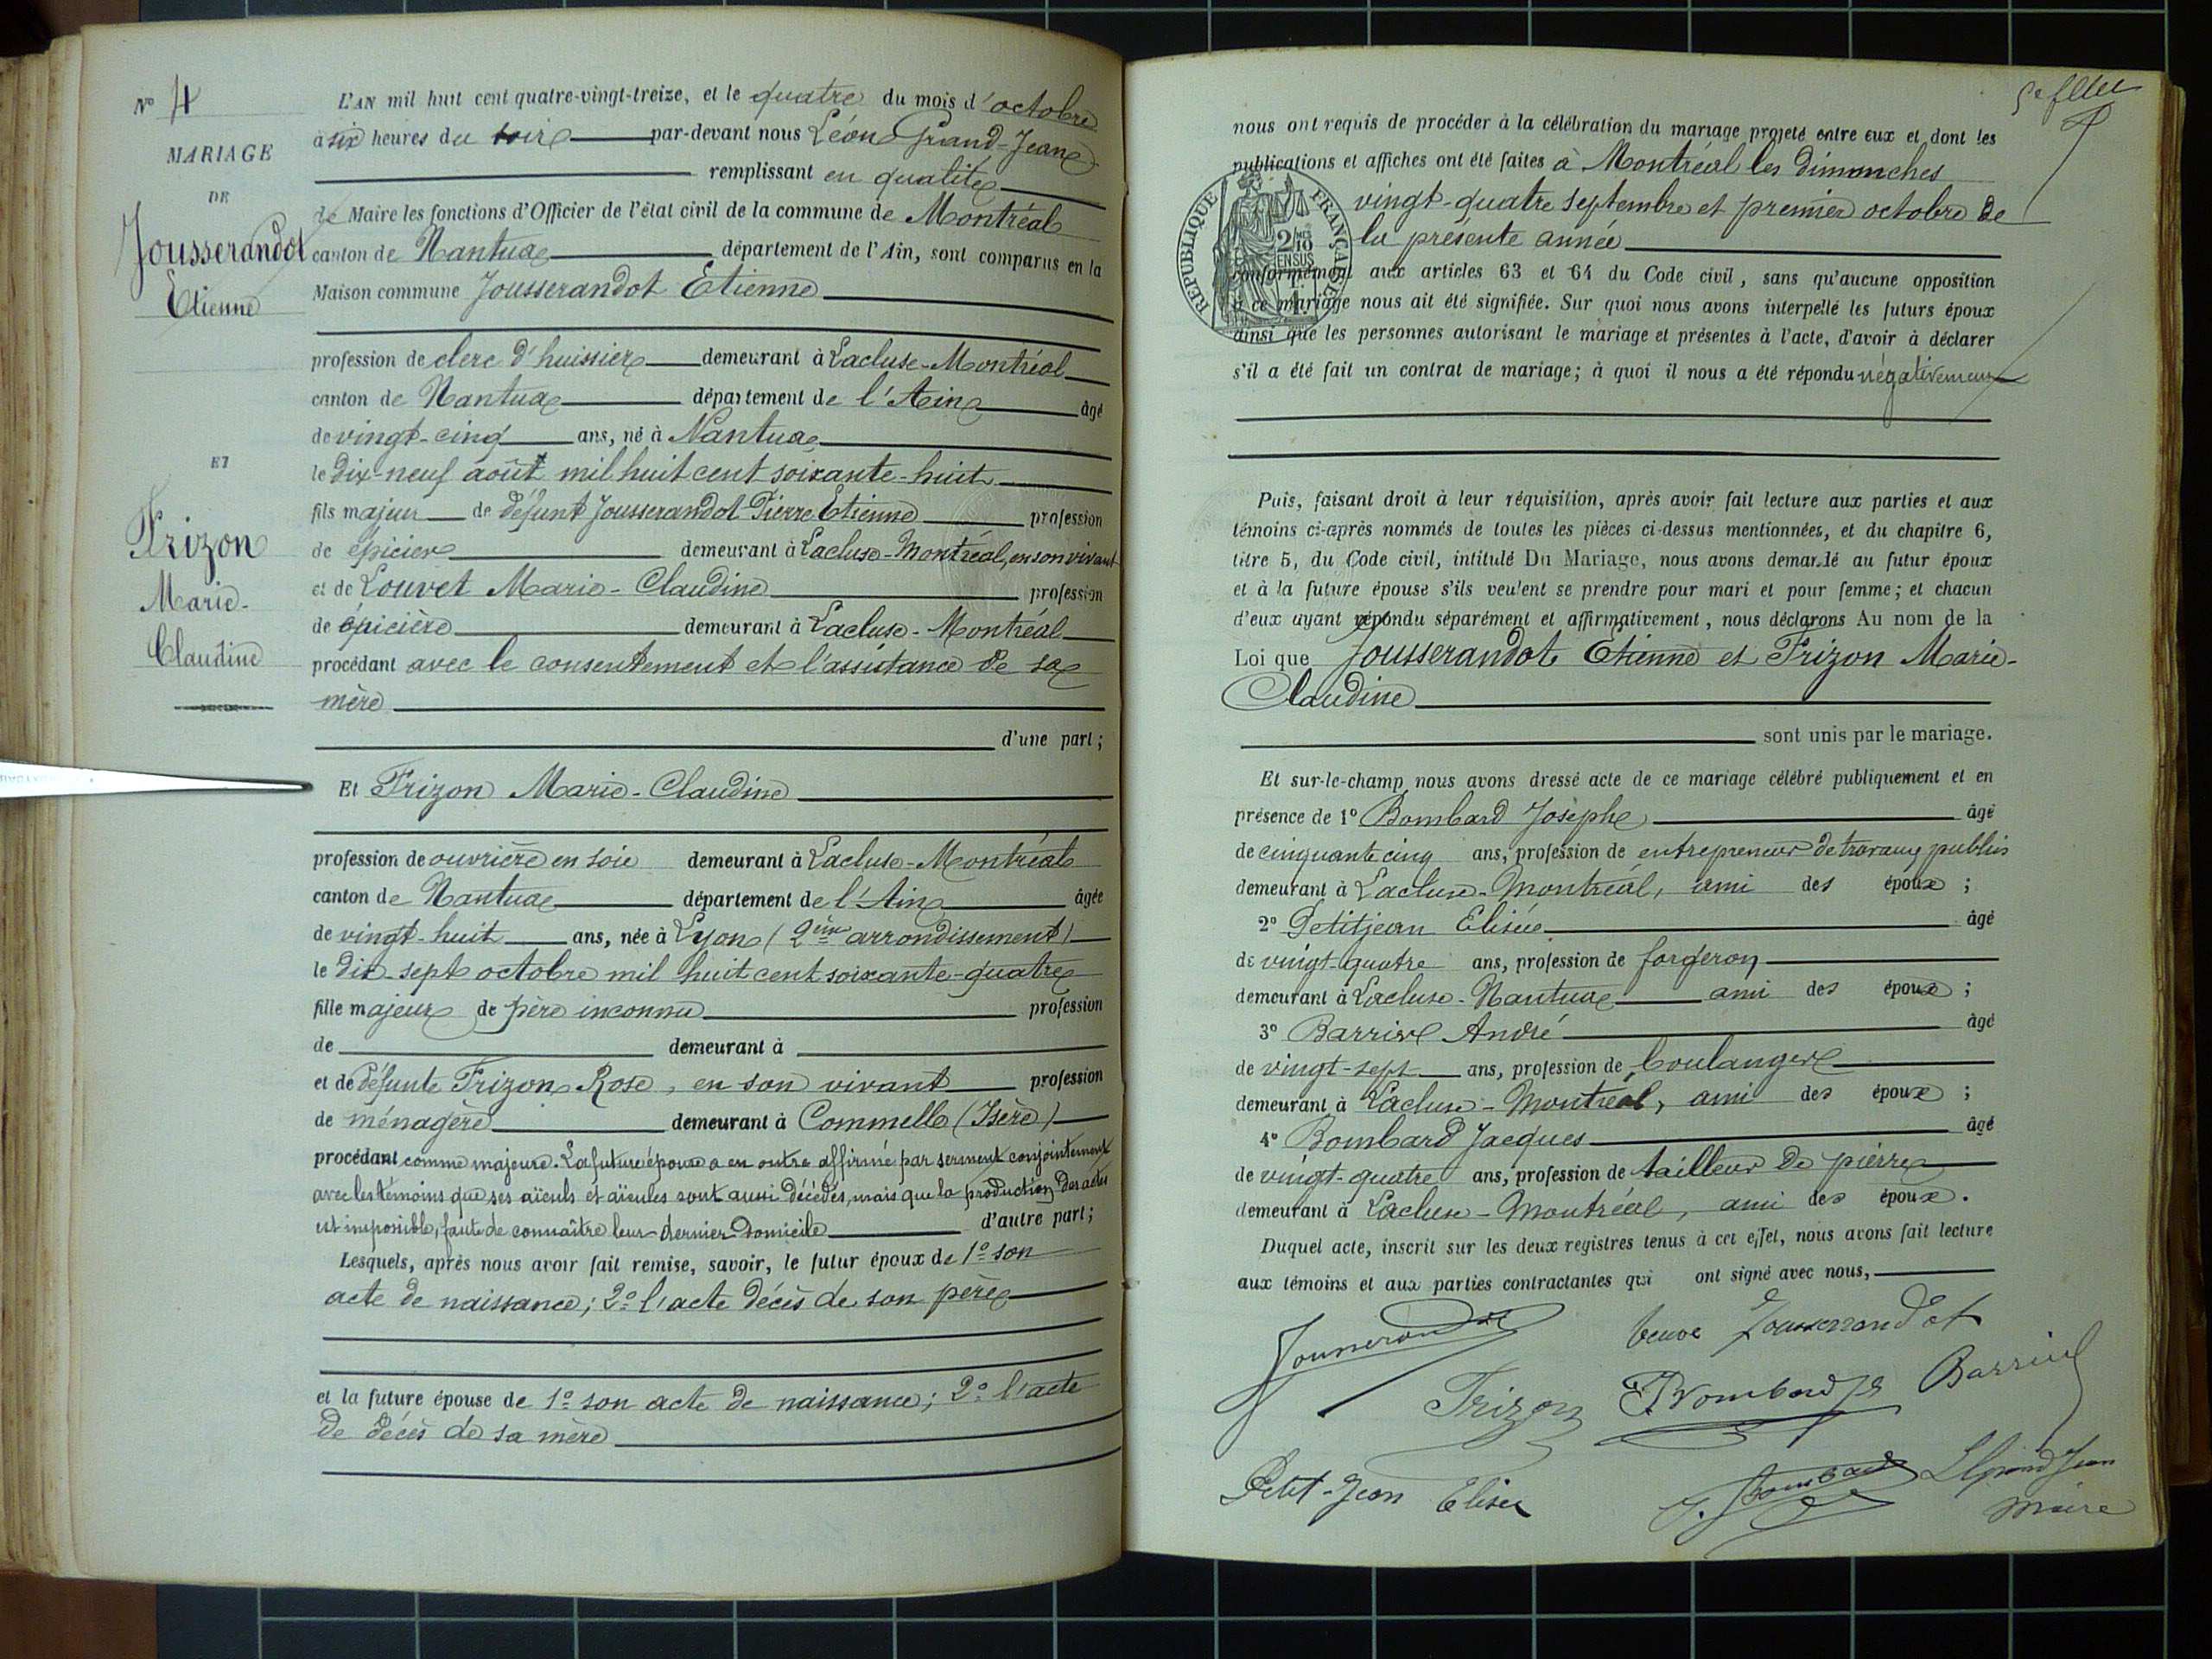 N° 4
MARIAGE
DE
Jousserandot
Etienne
ET
Frizon
Marie-
Claudine
L'AN mil huit cent quatre-vingt-treize, et le quatre du mois d'octobre
à six heures du soir par-devant nous Léon Grand-Jean
remplissant en qualité
de Maire les fonctions d'Officier de l'état civil de la commune de Montréal
canton de Nantua département de l'Ain, sont comparus en la
Maison commune Jousserandot Etienne
profession de clerc d'huissier demeurant à Lacluse-Montréal
canton de Nantua département de l'Ain âgé
de vingt-cinq ans, né à Nantua
le dix-neuf août mil huit cent soixante-huit
fils majeur de défunt Jousserandot Pierre Etienne profession
de épicier demeurant à Lacluse-Montréal, en son vivant
et de Louvet Marie-Claudine profession
de épicière demeurant à Lacluse-Montréal
procédant avec le consentement et l'assistance de sa
mère
d'une part;
Et Frizon Marie-Claudine
profession de ouvrière en soie demeurant à Lacluse-Montréal
canton de Nantua département de l'Ain âgée
de vingt-huit ans, née à Lyon (2ème arrondissement)
le dix-sept octobre mil huit cent soixante-quatre
fille majeure de père inconnu profession
de demeurant à
et de défunte Frizon Rose, en son vivant profession
de ménagère demeurant à Commelle (Isère)
procédant comme majeure. La future épouse a en outre affirmé par serment conjointement
avec les témoins que ses aïeuls et aïeules sont aussi décédés, mais que la production des actes
est impossible, faute de connaître leur dernier domicile d'autre part;
Lesquels, après nous avoir fait remise, savoir, le futur époux de 1° son
acte de naissance; 2° l'acte décès de son père
et la future épouse de 1° son acte de naissance; 2° l'acte
de décès de sa mère
nous ont requis de procéder à la célébration du mariage projeté entre eux et dont les
publications et affiches ont été faites à Montréal les dimanches
vingt-quatre septembre et premier octobre de
la présente année
RÉPUBLIQUE FRANÇAISE
2/10
EN SUS
conformément aux articles 63 et 64 du Code civil, sans qu'aucune opposition
à ce mariage nous ait été signifiée. Sur quoi nous avons interpellé les futurs époux
ainsi que les personnes autorisant le mariage et présentes à l'acte, d'avoir à déclarer
s'il a été fait un contrat de mariage; à quoi il nous a été répondu négativement
Puis, faisant droit à leur réquisition, après avoir fait lecture aux parties et aux
témoins ci-après nommés de toutes les pièces ci-dessus mentionnées, et du chapitre 6,
titre 5, du Code civil, intitulé Du Mariage, nous avons demandé au futur époux
et à la future épouse s'ils veulent se prendre pour mari et pour femme; et chacun
d'eux ayant répondu séparément et affirmativement, nous déclarons Au nom de la
Loi que Jousserandot Etienne et Frizon Marie-
Claudine
sont unis par le mariage.
Et sur-le-champ nous avons dressé acte de ce mariage célébré publiquement et en
présence de 1° Bombard Josèphe âgé
de cinquante cinq ans, profession de entrepreneur de travaux publics
demeurant à Lacluse-Montréal, ami des époux;
2° Petitjean Elisée âgé
de vingt-quatre ans, profession de forgeron
demeurant à Lacluse-Nantua ami des époux;
3° Barrier André âgé
de vingt-sept ans, profession de boulanger
demeurant à Lacluse-Montréal, ami des époux;
4° Bombard Jacques âgé
de vingt-quatre ans, profession de tailleur de pierre
demeurant à Lacluse-Montréal, ami des époux.
Duquel acte, inscrit sur les deux registres tenus à cet effet, nous avons fait lecture
aux témoins et aux parties contractantes qui ont signé avec nous,
Jousserandot
veuve Jousserandot
Frizon
Bombard
Petit-Jean Elisée
J. Bombard
LGrandJean
Maire